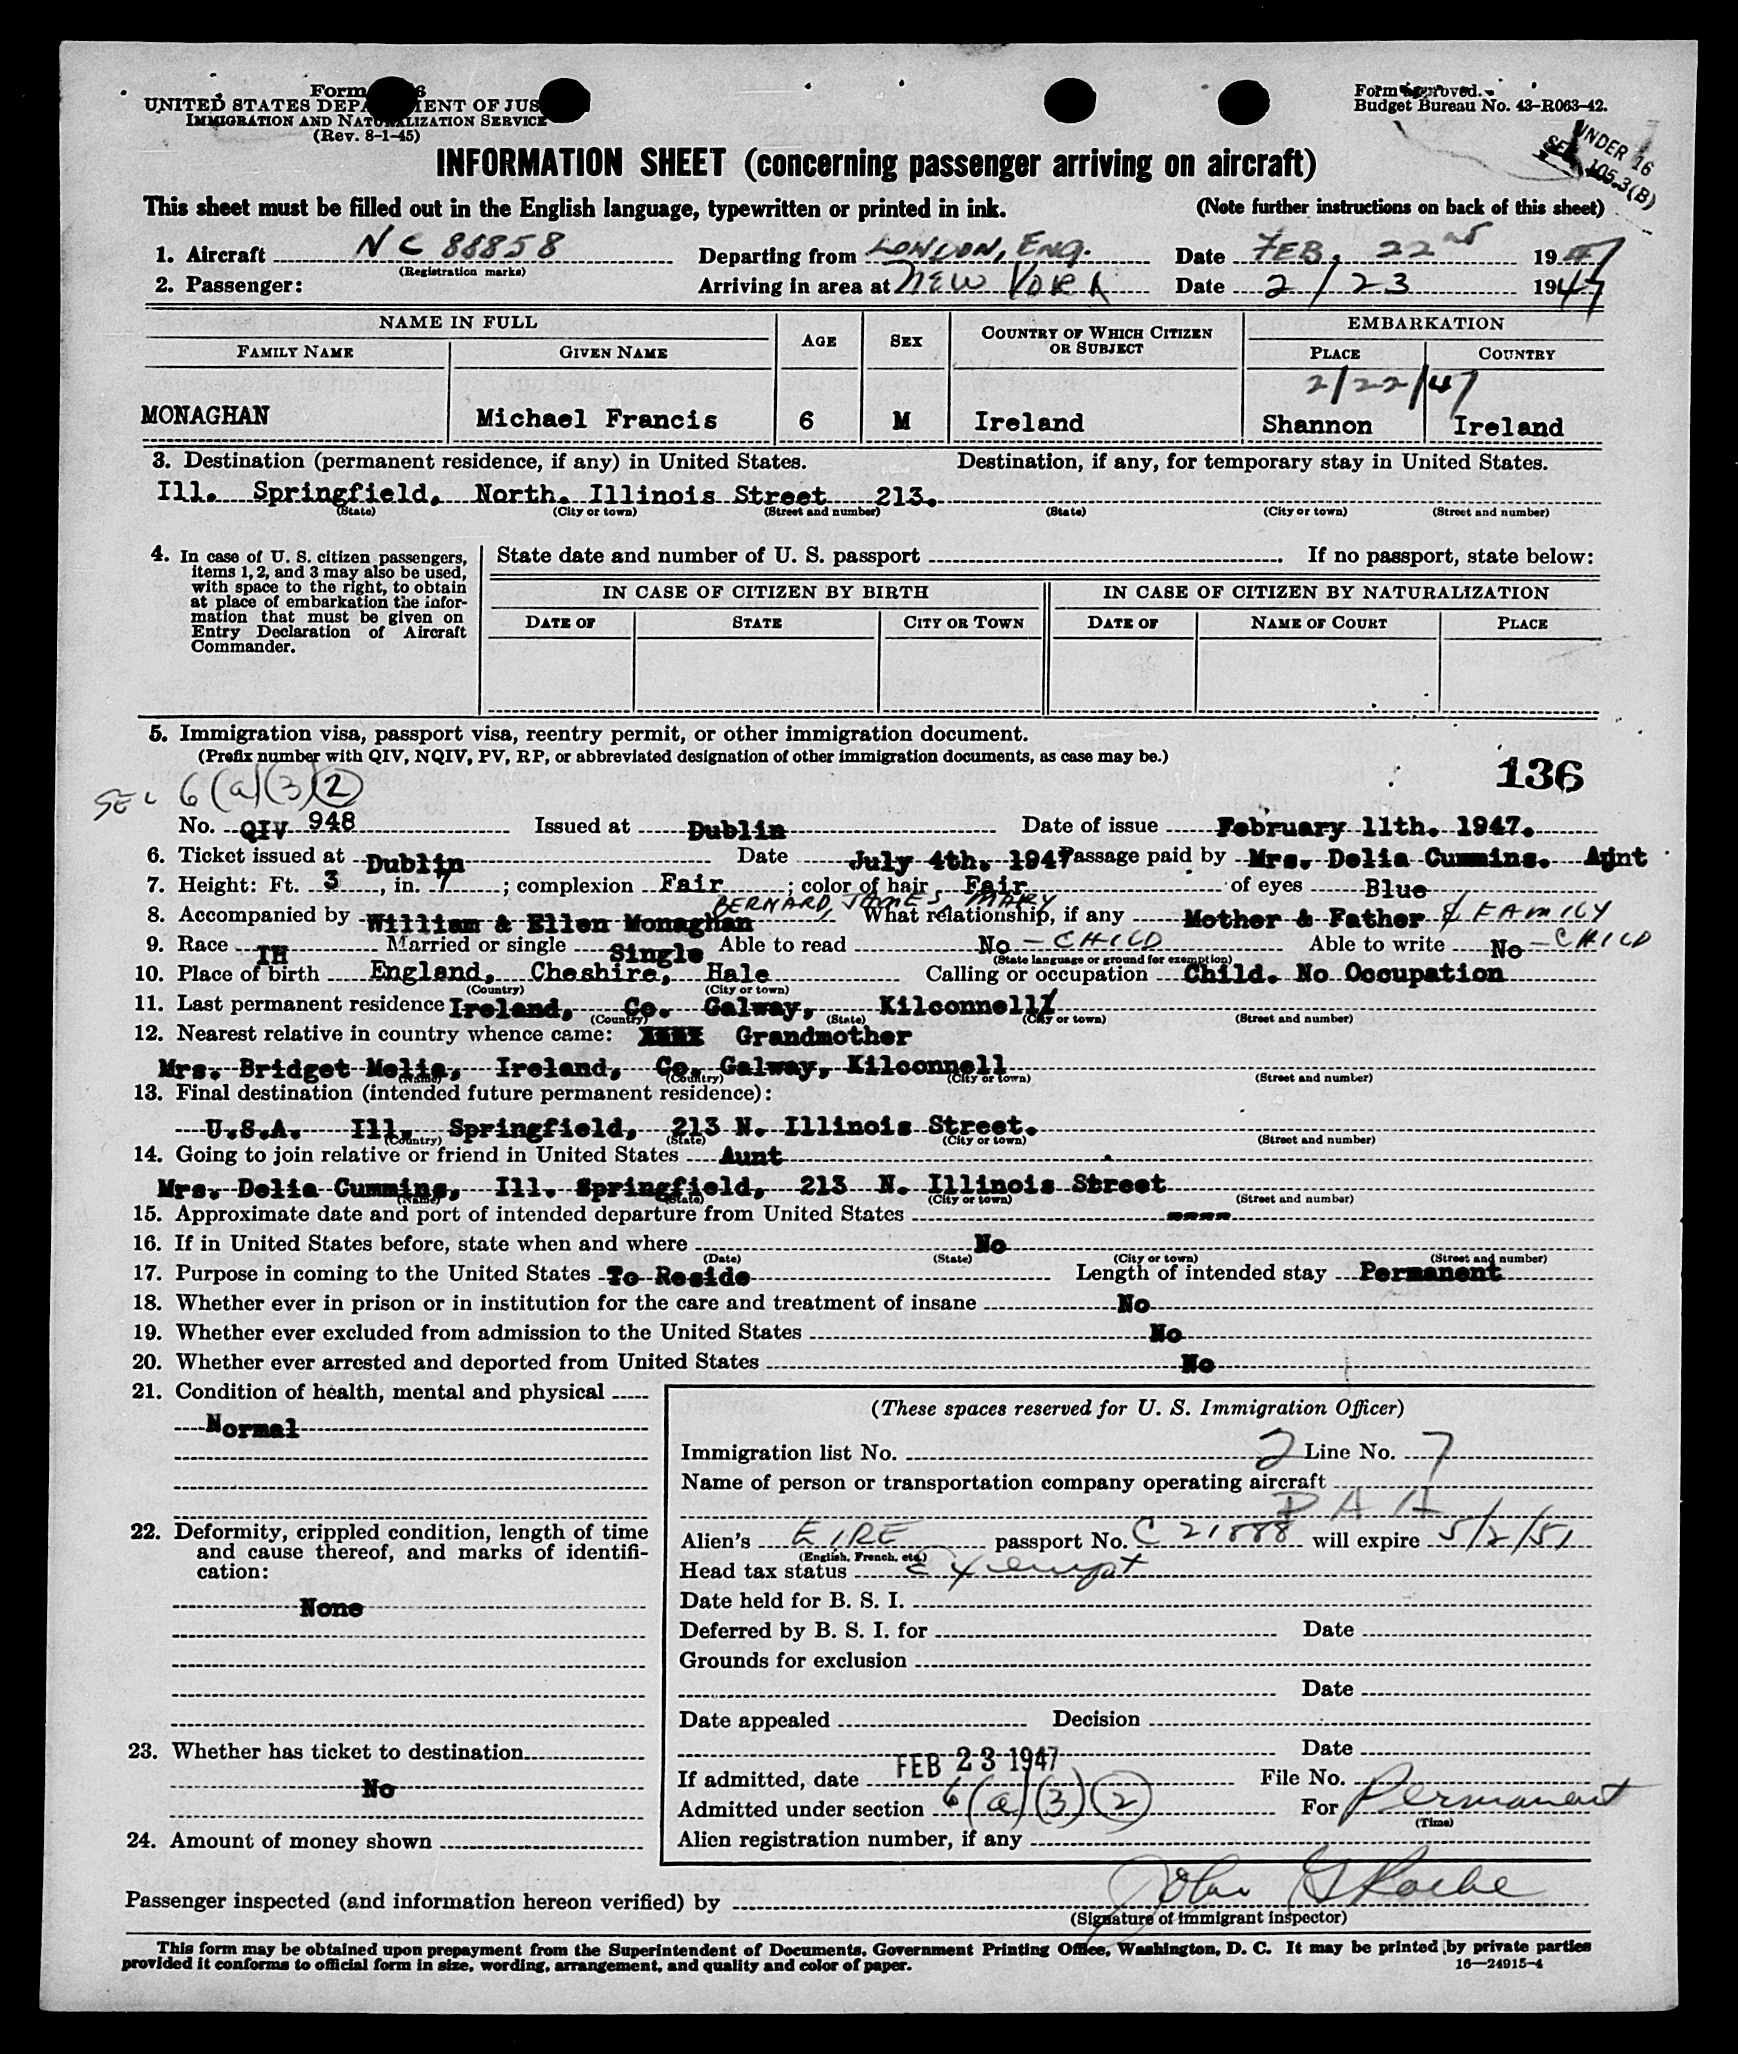 Form 6
UNITED STATES DEPARTMENT OF JUS
IMMIGRATION AND NATURALIZATION SERVICE
(Rev. 8-1-45)
Form approved.
Budget Bureau No. 43-R063-42.
UNDER 16
SEC 105.3(B)
INFORMATION SHEET (concerning passenger arriving on aircraft)
This sheet must be filled out in the English language, typewritten or printed in ink. (Note further instructions on back of this sheet)
1. Aircraft NC 88858 Departing from LONDON, ENG. Date FEB. 22 1947
(Registration marks)
2. Passenger: Arriving in area at NEW YORK Date 2/23 1947
NAME IN FULL AGE SEX COUNTRY OF WHICH CITIZEN OR SUBJECT EMBARKATION
FAMILY NAME GIVEN NAME PLACE COUNTRY
2/22/47
MONAGHAN Michael Francis 6 M Ireland Shannon Ireland
3. Destination (permanent residence, if any) in United States. Destination, if any, for temporary stay in United States.
Ill. Springfield, North. Illinois Street 213.
(State) (City or town) (Street and number) (State) (City or town) (Street and number)
4. In case of U. S. citizen passengers,
items 1, 2, and 3 may also be used,
with space to the right, to obtain
at place of embarkation the infor-
mation that must be given on
Entry Declaration of Aircraft
Commander.
State date and number of U. S. passport If no passport, state below:
IN CASE OF CITIZEN BY BIRTH IN CASE OF CITIZEN BY NATURALIZATION
DATE OF STATE CITY OR TOWN DATE OF NAME OF COURT PLACE
5. Immigration visa, passport visa, reentry permit, or other immigration document.
(Prefix number with QIV, NQIV, PV, RP, or abbreviated designation of other immigration documents, as case may be.)
136
SEC 6(a)(3)(2)
No. QIV 948 Issued at Dublin Date of issue February 11th. 1947.
6. Ticket issued at Dublin Date July 4th. 1947 Passage paid by Mrs. Delia Cummins. Aunt
7. Height: Ft. 3, in. 7; complexion Fair; color of hair Fair of eyes Blue
BERNARD, JAMES, MARY
8. Accompanied by William & Ellen Monaghan What relationship, if any Mother & Father & FAMILY
9. Race IH Married or single Single Able to read No - CHILD Able to write No - CHILD
(State language or ground for exemption)
10. Place of birth England, Cheshire, Hale Calling or occupation Child. No Occupation
(Country) (City or town)
11. Last permanent residence Ireland, Co. Galway, Kilconnell
(Country) (State) (City or town) (Street and number)
12. Nearest relative in country whence came: Grandmother
Mrs. Bridget Melia, Ireland, Co. Galway, Kilconnell
(Name) (Country) (City or town) (Street and number)
13. Final destination (intended future permanent residence):
U.S.A. Ill. Springfield, 213 N. Illinois Street.
(Country) (State) (City or town) (Street and number)
14. Going to join relative or friend in United States Aunt
Mrs. Delia Cummins, Ill. Springfield, 213 N. Illinois Street
(Name) (State) (City or town) (Street and number)
15. Approximate date and port of intended departure from United States ----
16. If in United States before, state when and where No
(Date) (State) (City or town) (Street and number)
17. Purpose in coming to the United States To Reside Length of intended stay Permanent
18. Whether ever in prison or in institution for the care and treatment of insane No
19. Whether ever excluded from admission to the United States No
20. Whether ever arrested and deported from United States No
21. Condition of health, mental and physical
Normal
22. Deformity, crippled condition, length of time
and cause thereof, and marks of identifi-
cation:
None
23. Whether has ticket to destination
No
24. Amount of money shown
(These spaces reserved for U. S. Immigration Officer)
Immigration list No. 2 Line No. 7
Name of person or transportation company operating aircraft
P A A
Alien's EIRE passport No. C 21888 will expire 5/2/51
(English, French, etc.)
Head tax status Exempt
Date held for B. S. I.
Deferred by B. S. I. for Date
Grounds for exclusion
Date
Date appealed Decision
Date
If admitted, date FEB 23 1947 File No.
Admitted under section 6(a)(3)(2) For Permanent
(Time)
Alien registration number, if any
Passenger inspected (and information hereon verified) by John G Roche
(Signature of immigrant inspector)
This form may be obtained upon prepayment from the Superintendent of Documents, Government Printing Office, Washington, D. C. It may be printed by private parties
provided it conforms to official form in size, wording, arrangement, and quality and color of paper. 16—24915-4